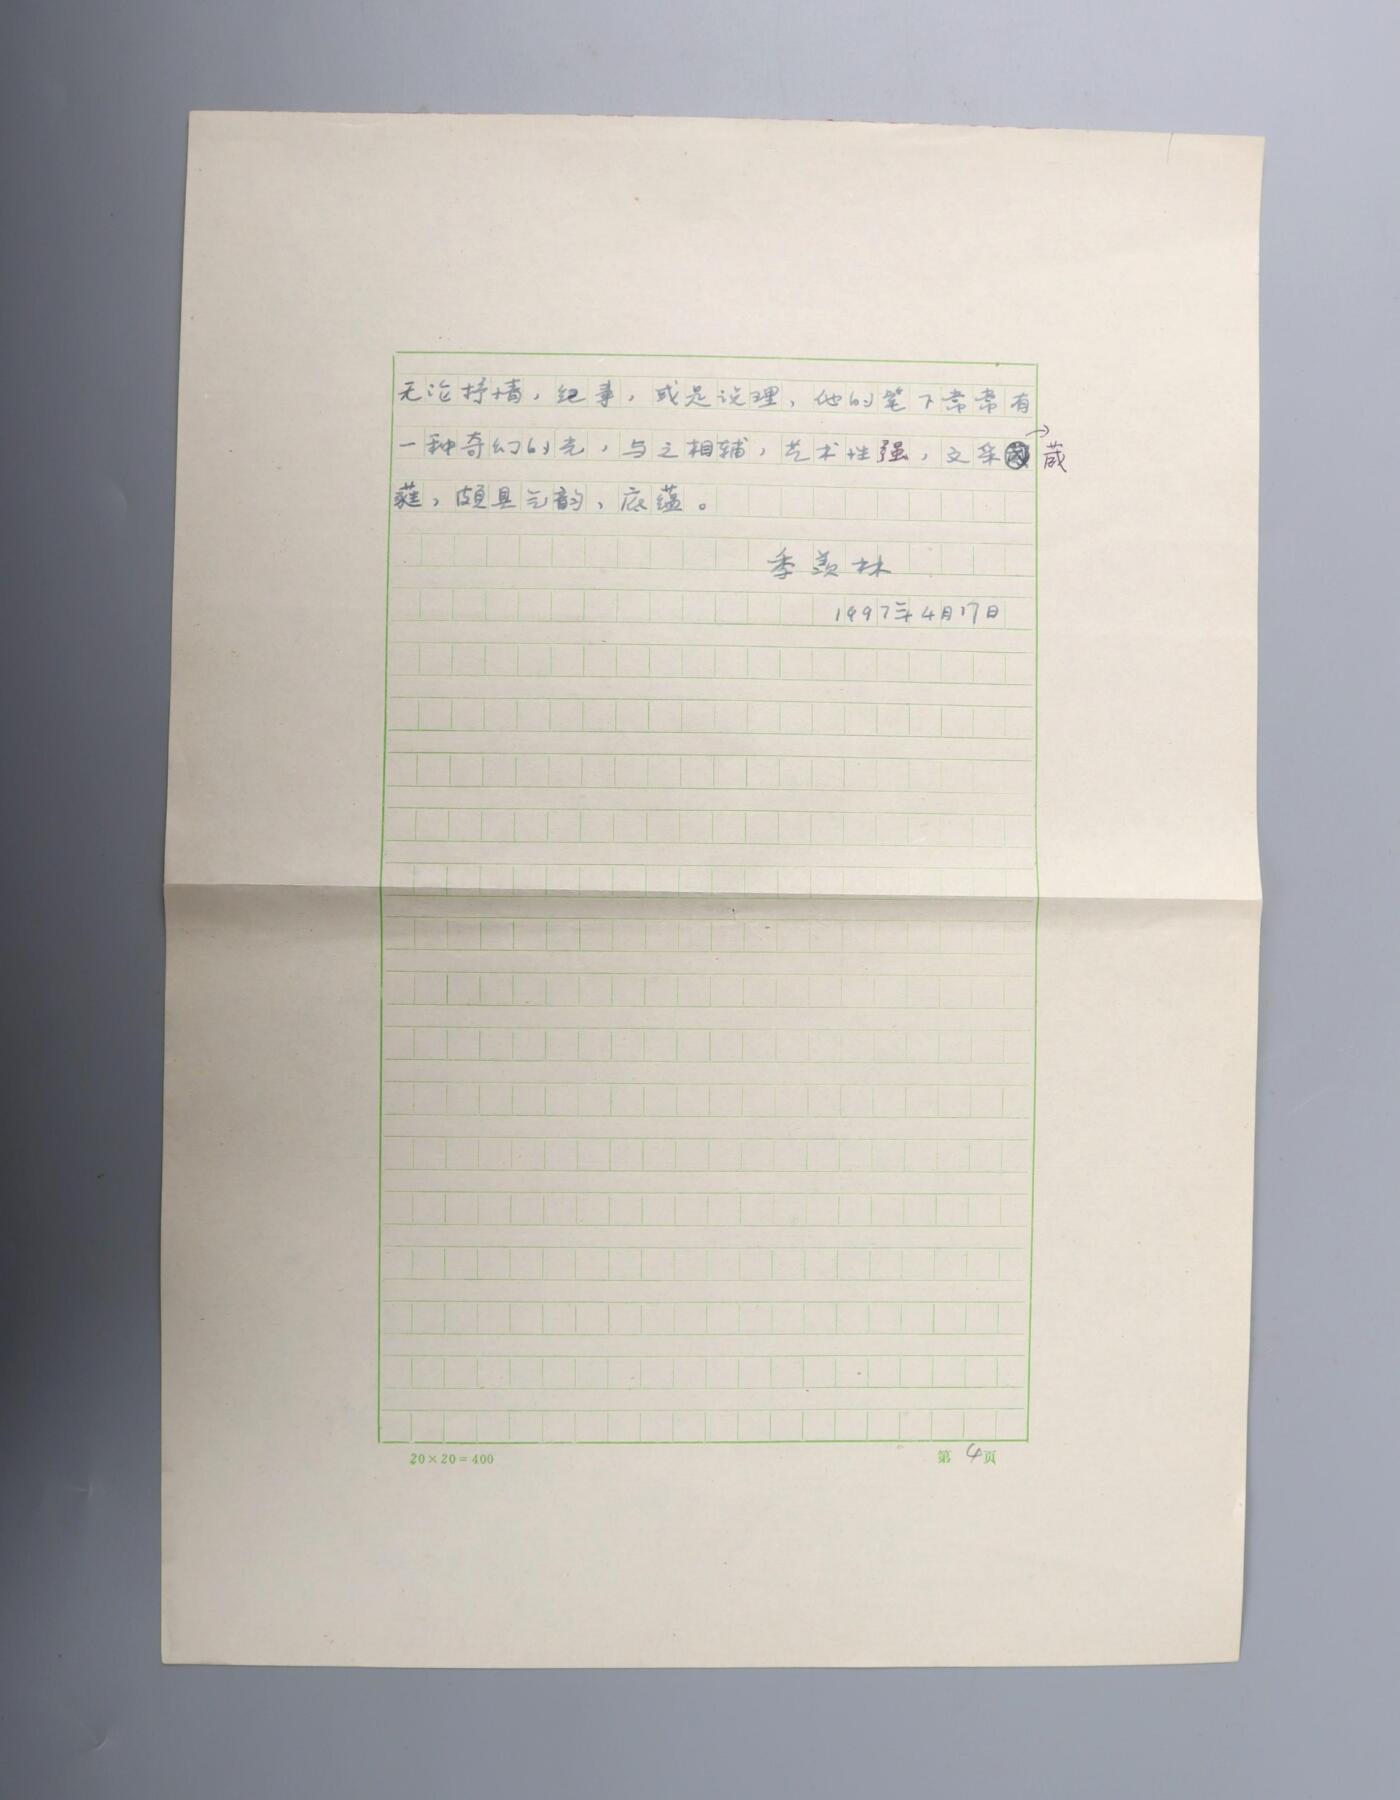 无论抒情，纪事，或是说理，他的笔下常常有
一种奇幻的光，与之相辅，艺术性强，文采葳
蕤，颇具气韵，底蕴。
季羡林
1997年4月17日
20×20=400
第4页